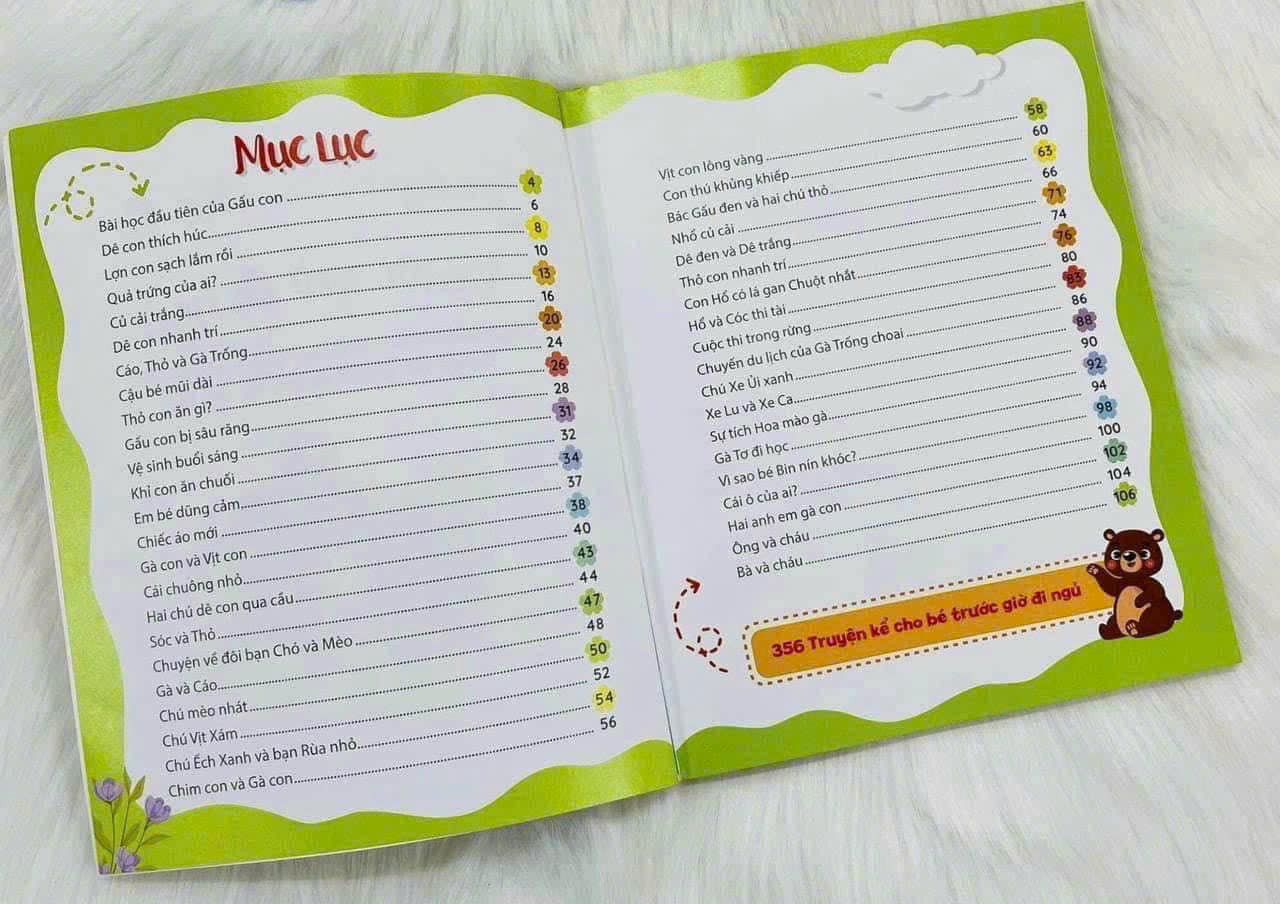 Mục Lục
Bài học đầu tiên của Gấu con ........ 4
Dê con thích húc........ 6
Lợn con sạch lắm rồi ........ 8
Quả trứng của ai? ........ 10
Củ cải trắng........ 13
Dê con nhanh trí........ 16
Cáo, Thỏ và Gà Trống........ 20
Cậu bé mũi dài ........ 24
Thỏ con ăn gì? ........ 26
Gấu con bị sâu răng........ 28
Vệ sinh buổi sáng ........ 31
Khỉ con ăn chuối ........ 32
Em bé dũng cảm........ 34
Chiếc áo mới ........ 37
Gà con và Vịt con ........ 38
Cái chuông nhỏ........ 40
Hai chú dê con qua cầu ........ 43
Sóc và Thỏ ........ 44
Chuyện về đôi bạn Chó và Mèo ........ 47
Gà và Cáo........ 48
Chú mèo nhát ........ 50
Chú Vịt Xám ........ 52
Chú Ếch Xanh và bạn Rùa nhỏ........ 54
Chim con và Gà con........ 56
Vịt con lông vàng ........ 58
Con thú khủng khiếp ........ 60
Bác Gấu đen và hai chú thỏ ........ 63
Nhổ củ cải ........ 66
Dê đen và Dê trắng........ 71
Thỏ con nhanh trí........ 74
Con Hổ có lá gan Chuột nhắt ........ 76
Hổ và Cóc thi tài ........ 80
Cuộc thi trong rừng ........ 83
Chuyến du lịch của Gà Trống choai ........ 86
Chú Xe Ủi xanh ........ 88
Xe Lu và Xe Ca........ 90
Sự tích Hoa mào gà........ 92
Gà Tơ đi học ........ 94
Vì sao bé Bin nín khóc? ........ 98
Cái ô của ai? ........ 100
Hai anh em gà con ........ 102
Ông và cháu ........ 104
Bà và cháu ........ 106
356 Truyện kể cho bé trước giờ đi ngủ